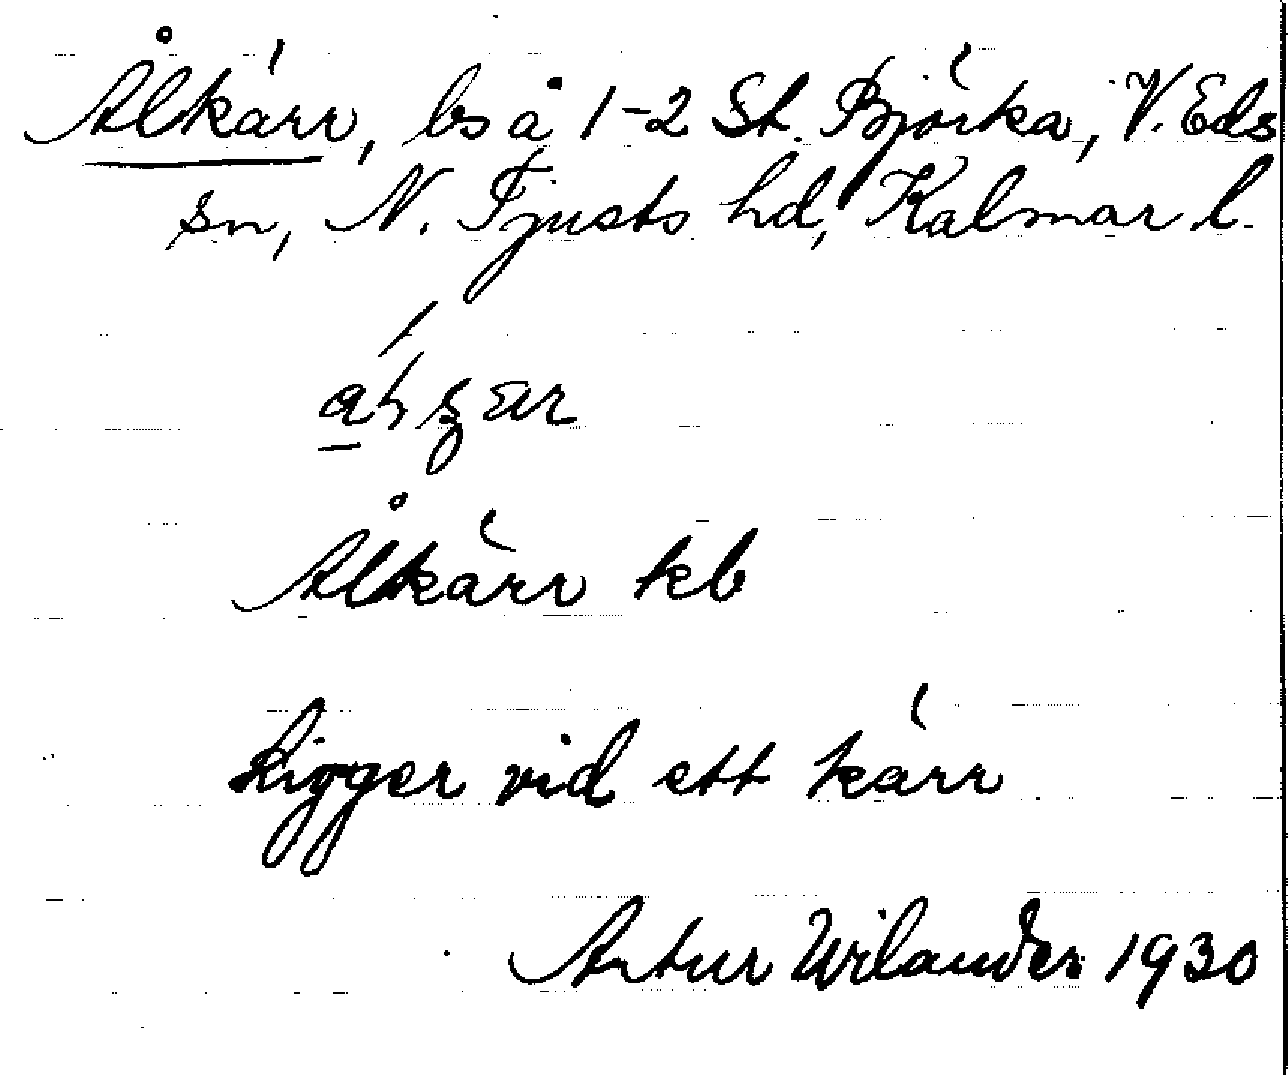 Ålkärr, ls å 1-2 St. Björka, V. Eds
sn, N. Tjusts hd, Kalmar l.
Ålkärr kb
Ligger vid ett kärr
Artur Wilander 1930